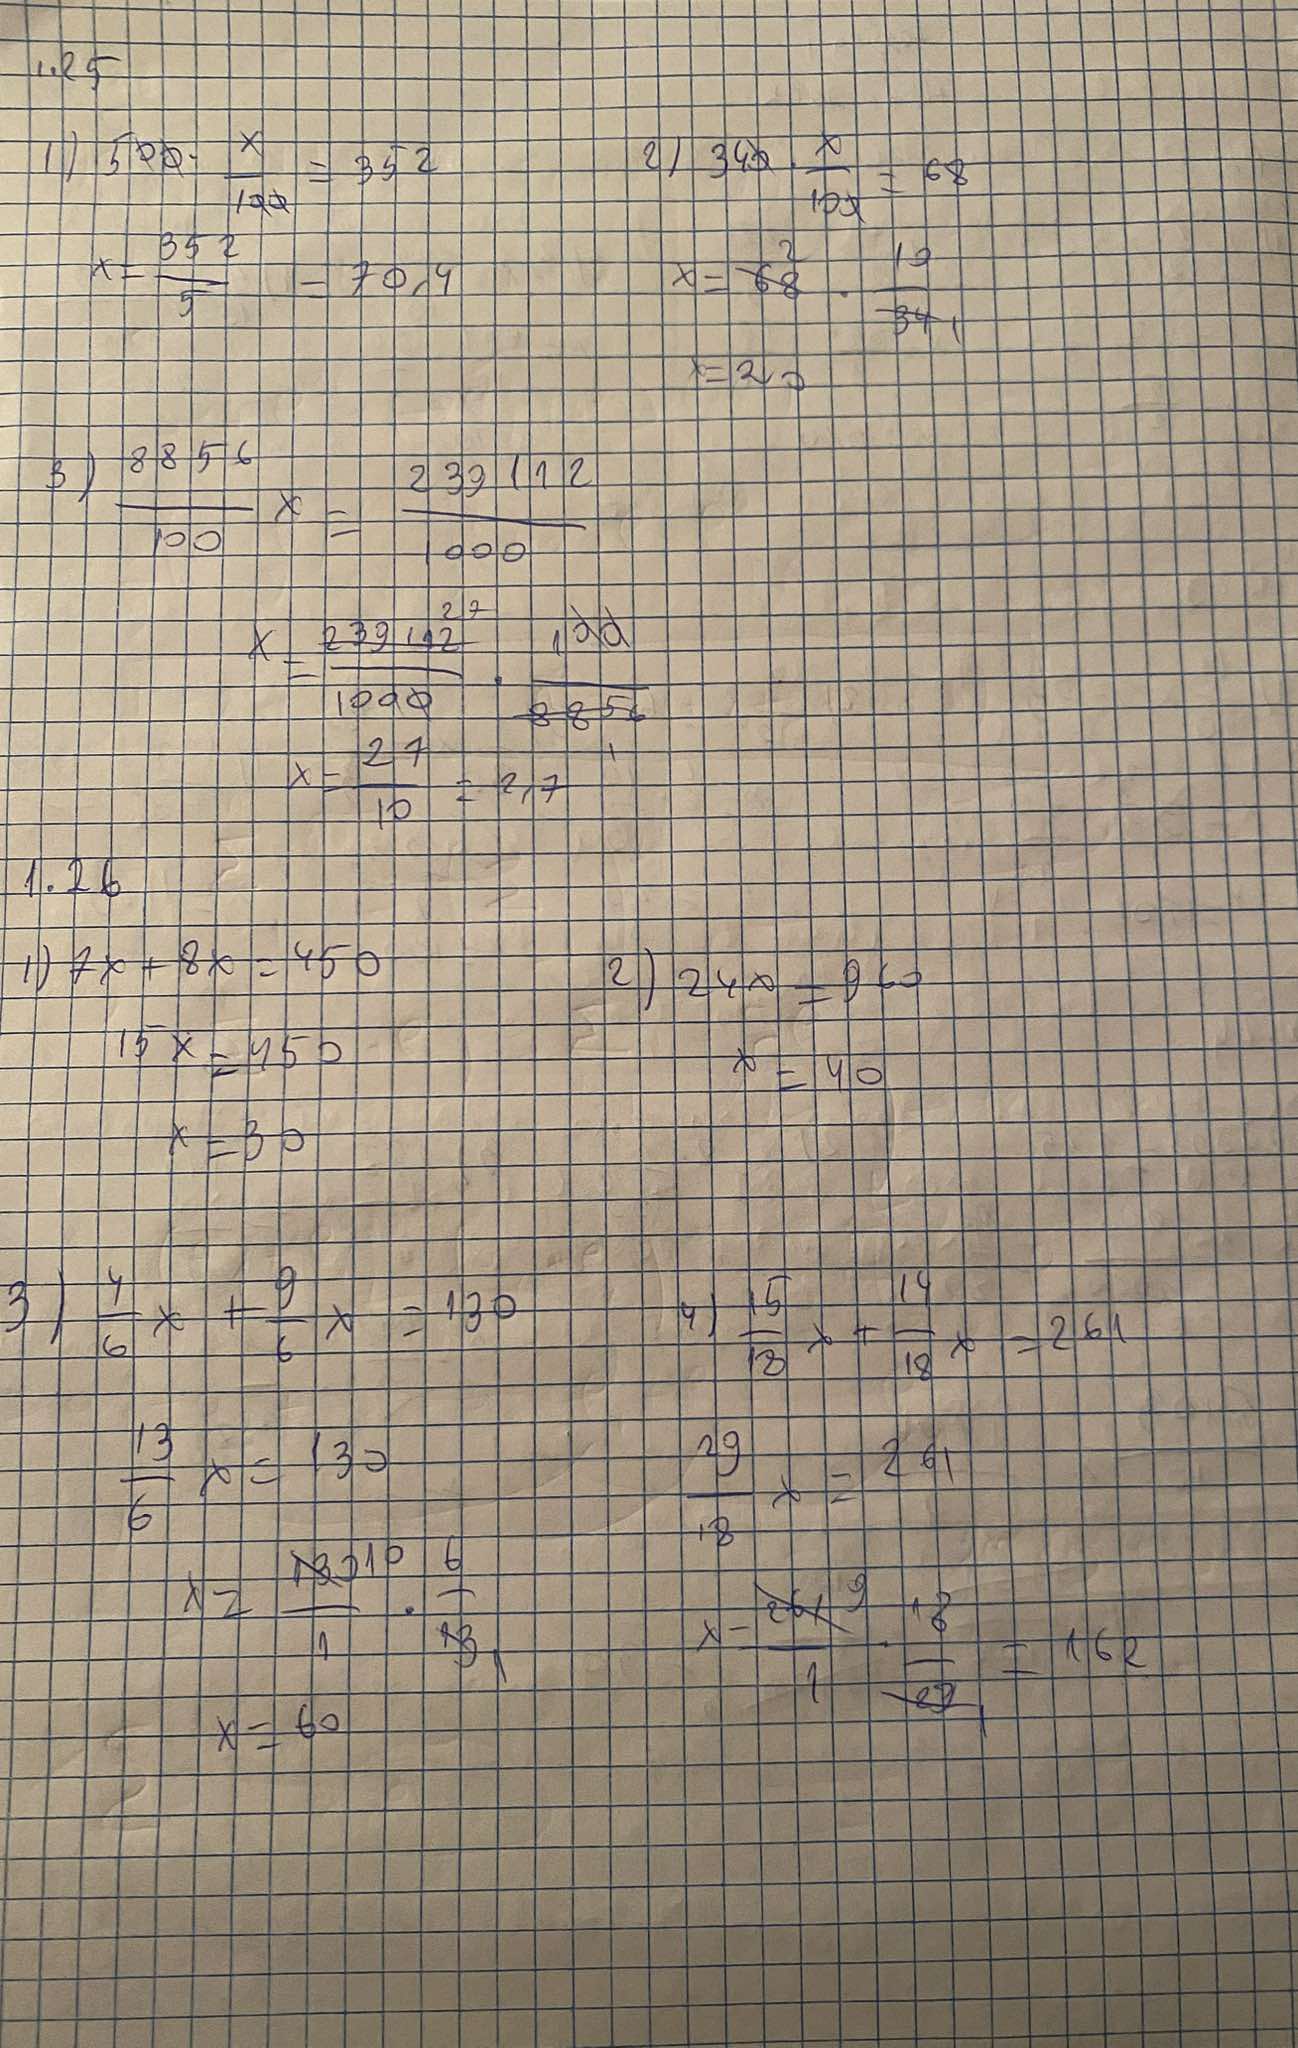 1.25
1) 500 · x/100 = 352
x = 352/5 = 70,4
2) 340 · x/100 = 68
x = 68 2 · 10/34 1
x = 20
3) 8856/100 x = 239112/1000
x = 239112 27/1000 · 100/8856 1
x = 27/10 = 2,7
1.26
1) 7x + 8x = 450
15x = 450
x = 30
2) 24x = 960
x = 40
3) 4/6 x + 9/6 x = 130
13/6 x = 130
x = 130 10/1 · 6/13 1
x = 60
4) 15/18 x + 14/18 x = 261
29/18 x = 261
x = 261 9/1 · 18/29 1 = 162